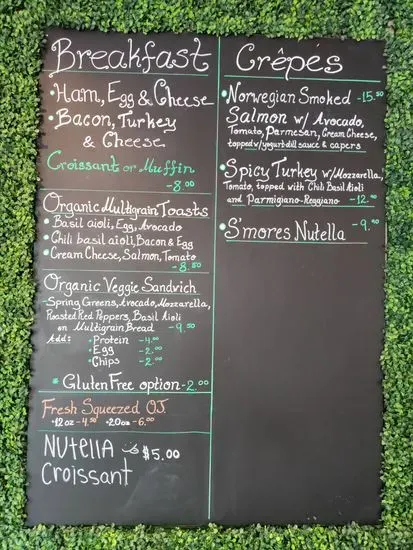 Breakfast
• Ham, Egg & Cheese
• Bacon, Turkey
& Cheese
Croissant or Muffin
- 8.00
Organic Multigrain Toasts
• Basil aioli, Egg, Avocado
• Chili basil aioli, Bacon & Egg
• Cream Cheese, Salmon, Tomato
- 8.50
Organic Veggie Sandwich
- Spring Greens, Avocado, Mozzarella,
Roasted Red Peppers, Basil Aioli
on Multigrain Bread - 9.50
Add: • Protein - 4.00
• Egg - 2.00
• Chips - 2.00
* Gluten Free option - 2.00
Fresh Squeezed O.J.
• 12oz - 4.50 • 20oz - 6.00
Nutella $5.00
Croissant
Crêpes
• Norwegian Smoked - 15.50
Salmon w/ Avocado,
Tomato, Parmesan, Cream Cheese,
topped w/ yogurt dill sauce & capers
• Spicy Turkey w/ Mozzarella,
Tomato, topped with Chili Basil Aioli
and Parmigiano-Reggiano - 12.00
• S'mores Nutella - 9.50